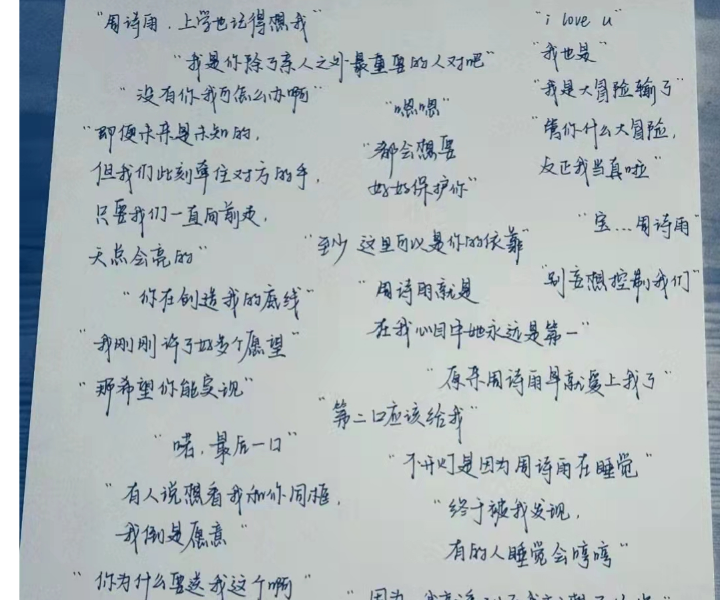 "周诗雨，上学也记得想我"
"我是你除了亲人之外最重要的人对吧"
"没有你我可怎么办啊"
"嗯嗯"
"即便未来是未知的，
但我们此刻牵住对方的手，
只要我们一直向前走，
天总会亮的"
"都会想要
好好保护你"
"i love u"
"我也是"
"我是大冒险输了"
"管你什么大冒险，
反正我当真啦"
"宝…周诗雨"
"至少 这里可以是你的依靠"
"别妄想控制我们"
"你在创造我的底线"
"周诗雨就是
在我心目中她永远是第一"
"我刚刚许了好多个愿望"
"那希望你能实现"
"原来周诗雨早就爱上我了"
"第二口应该给我"
"喏，最后一口"
"不开灯是因为周诗雨在睡觉"
"有人说想看我和你同框，
我倒是愿意"
"终于被我发现，
有的人睡觉会哼哼"
"你为什么要送我这个啊"
"因为